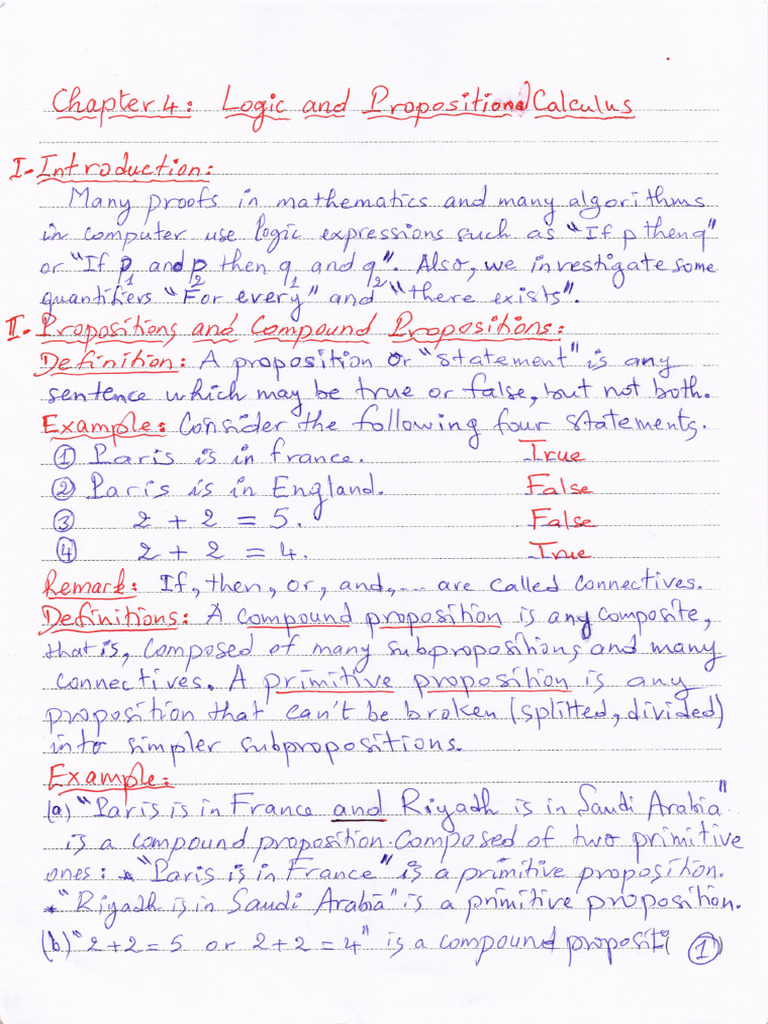 Chapter 4: Logic and Propositional Calculus
I- Introduction:
Many proofs in mathematics and many algorithms
in computer use logic expressions such as "If p then q"
or "If p1 and p2 then q1 and q2". Also, we investigate some
quantifiers "For every" and "there exists".
II- Propositions and Compound Propositions:
Definition: A proposition or "statement" is any
sentence which may be true or false, but not both.
Example: Consider the following four statements.
① Paris is in france. True
② Paris is in England. False
③ 2 + 2 = 5. False
④ 2 + 2 = 4. True
Remark: If, then, or, and,... are called connectives.
Definitions: A compound proposition is any composite,
that is, composed of many subpropositions and many
connectives. A primitive proposition is any
proposition that can't be broken (splitted, divided)
into simpler subpropositions.
Example:
(a) "Paris is in France and Riyadh is in Saudi Arabia"
is a compound proposition. Composed of two primitive
ones: * "Paris is in France" is a primitive proposition.
* "Riyadh is in Saudi Arabia" is a primitive proposition.
(b) "2+2=5 or 2+2=4" is a compound propositi
①